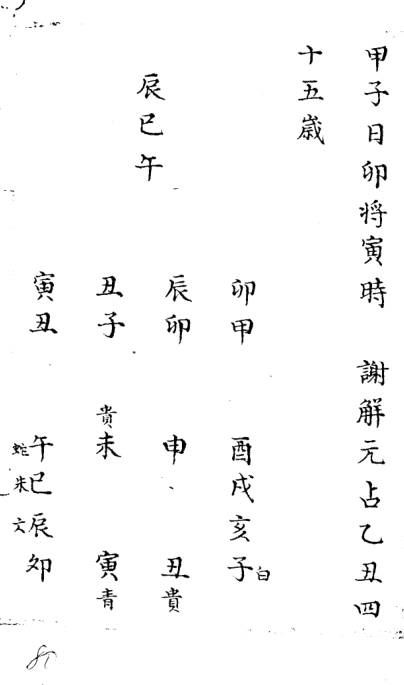 甲子日卯将寅時　謝解元占乙丑四
十五歲
辰巳午
卯甲　酉戌亥子白
辰卯　申　丑貴
丑子　貴未　寅青
寅丑　午巳辰卯
蛇朱